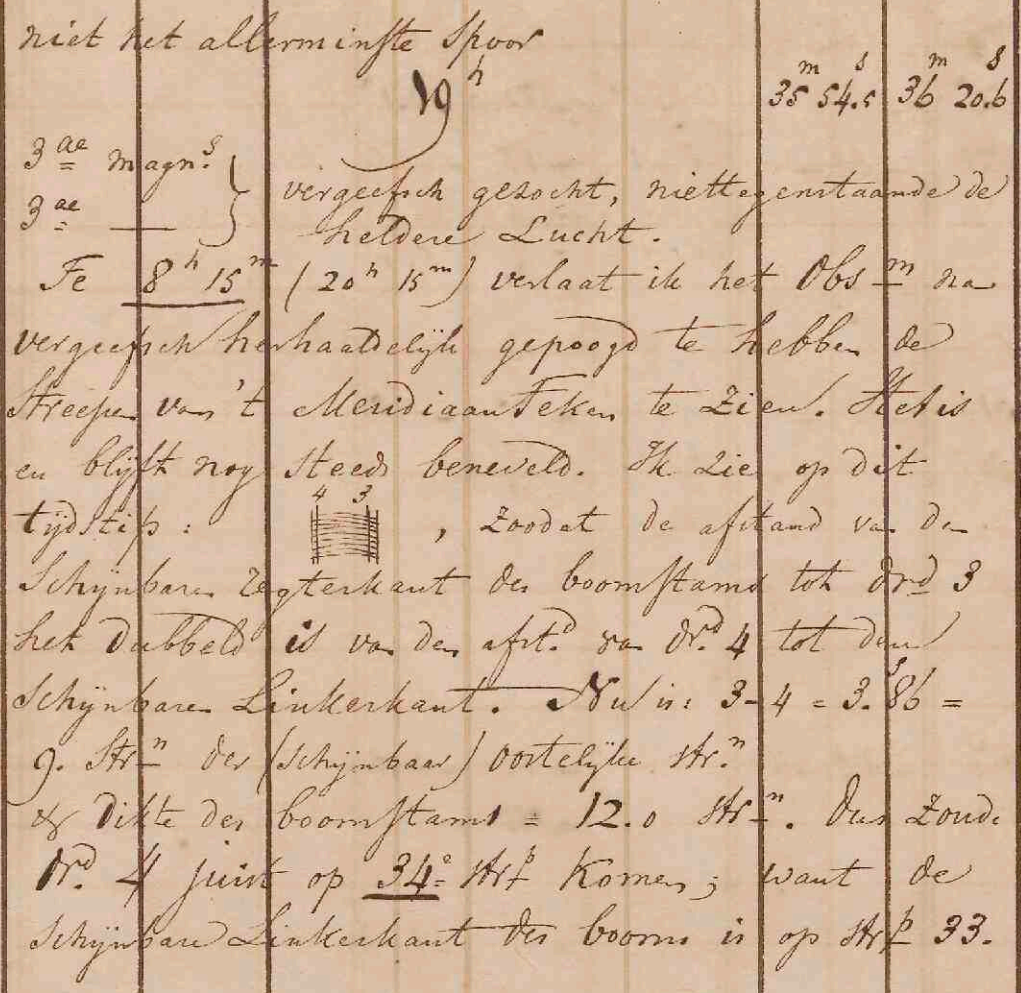 niet het allerminste Spoor
19h 35m 54.5s 36m 20.6s
3ae magns.
3ae — } vergeefsch gezocht, niettegenstaande de
heldere Lucht.
Te 8h 15m (20h 15m) verlaat ik het Obsm na
vergeefsch herhaaldelijk gepoogd te hebben de
Streepen van 't Meridiaan Teken te zien. Het is
en blijft nog steeds beneveld. Ik zie op dit
4 3
tijdstip: , zoodat de afstand van den
Schijnbaren regterkant des boomstams tot drd 3
het dubbeld is van den afstd. van drd. 4 tot den
Schijnbaren Linkerkant. Nu is: 3-4 = 3.s86 =
9. Strn der (schijnbaar) oostelijke str.n
& dikte des boomstams = 12.0 strn. Dus zoude
drd. 4 juist op 34e strp komen; want de
schijnbare Linkerkant des booms is op strp 33.